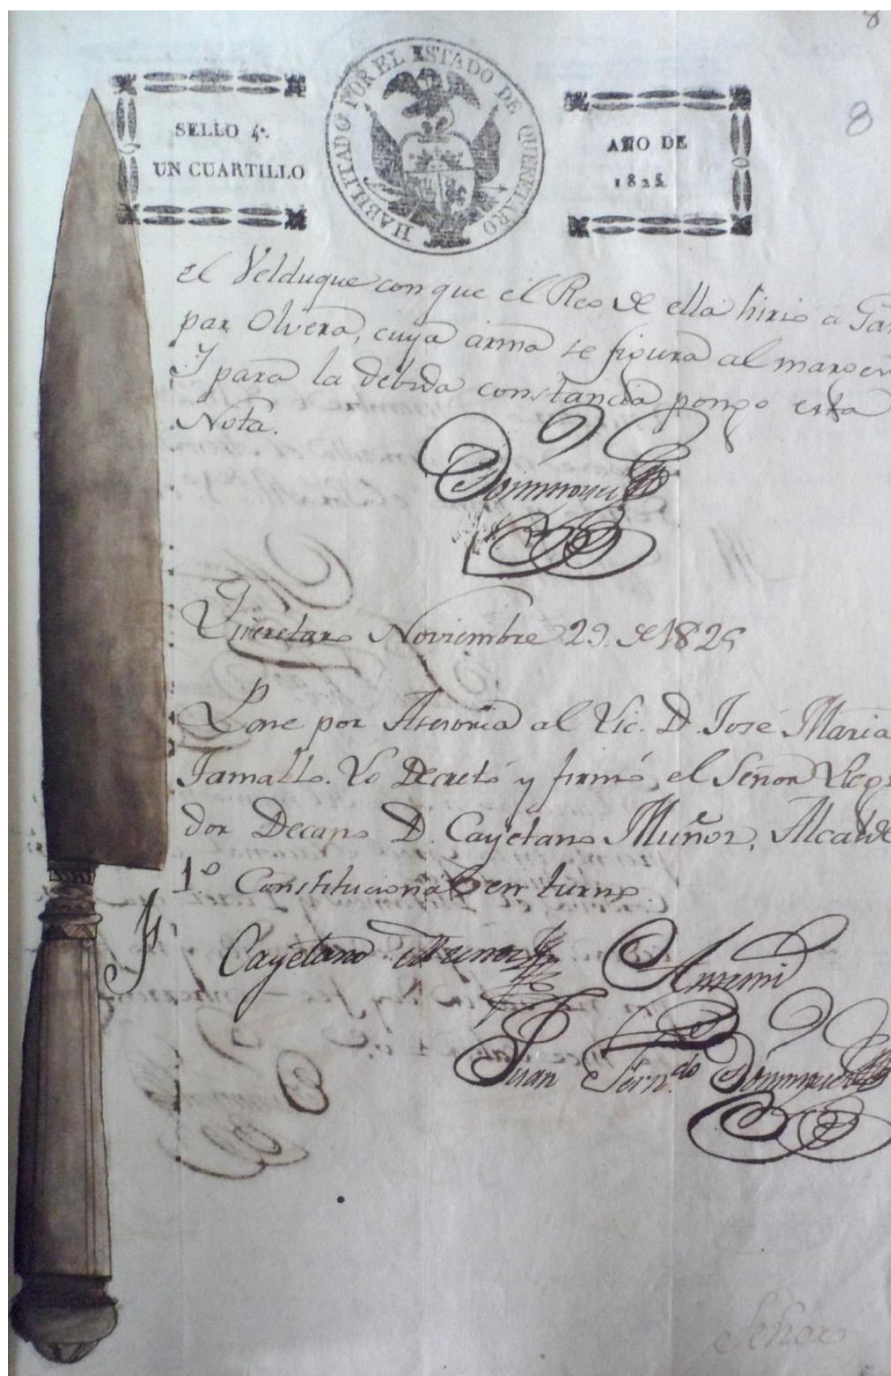 8
8
SELLO 4º.
UN CUARTILLO
HABILITADO POR EL ESTADO DE QUERETARO
AÑO DE
1825
el Velduque con que el Reo de ella hirio a Gas
par Olvera, cuya arma se figura al margen
Y para la debida constancia pongo esta
Nota.
Dominguez
Queretaro Noviembre 29. de 1825
Pase por Asesoria al Lic. D. José Maria
Tamallo. Lo Decretó y firmó, el Señor Regi
dor Decano D. Cayetano Muñoz, Alcalde
1.º Constitucional en turno.
Cayetano Muñoz
Antemi
Juan Fern.do Dominguez
Señor